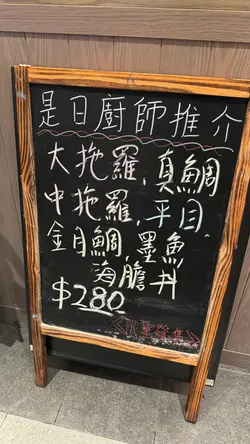 是日廚師推介
大拖羅,真鯛
中拖羅,平目,
金目鯛,墨魚
海膽丼
$280
<限量發售>